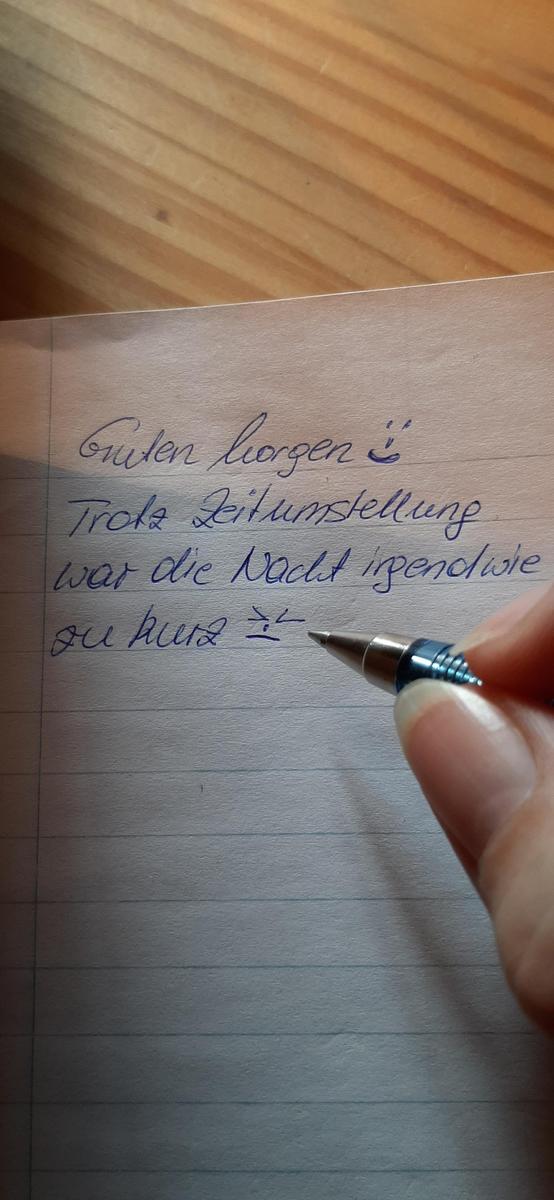 Guten Morgen
Trotz Zeitumstellung
war die Nacht irgendwie
zu kurz